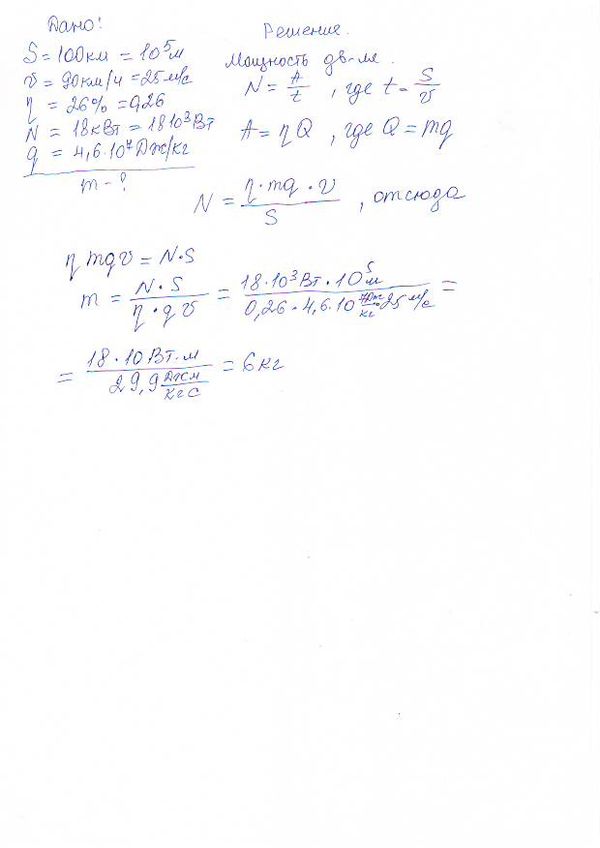 Дано!
S = 100км = 10⁵м
v = 90км/ч = 25 м/с
η = 26% = 0,26
N = 18кВт = 18·10³Вт
q = 4,6·10⁷Дж/кг
m - ?
Решение.
Мощность дв-ля.
N = A/t , где t = S/v
A = ηQ , где Q = mq
N = η·mq·v/S , отсюда
η mqv = N·S
m = N·S/η·qv = 18·10³Вт·10⁵м/0,26·4,6·10⁷Дж/кг·25 м/с =
= 18·10Вт·м/29,9 Дж м/кг с = 6кг